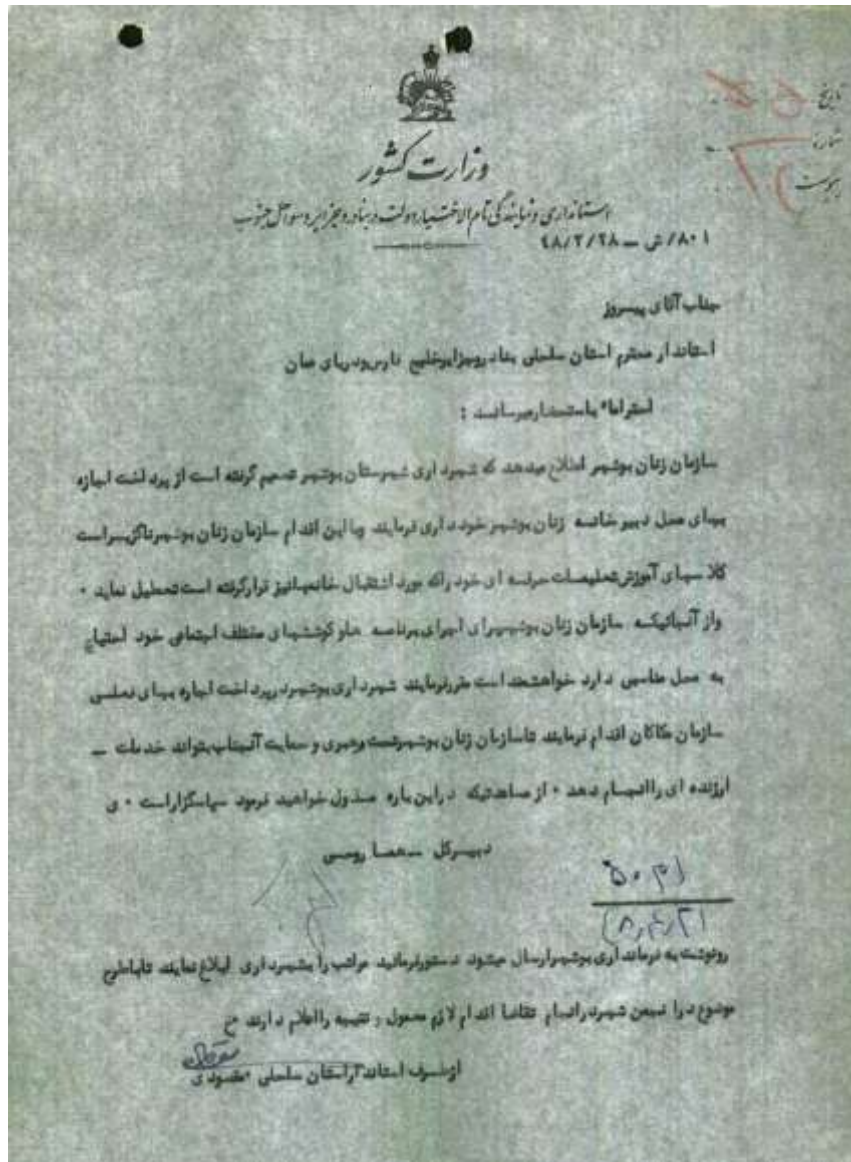 تاریخ
شماره
پیوست
وزارت کشور
استانداری و نمایندگی تام الاختیار دولت در بنادر و جزایر و سواحل جنوب
۸۰۱/ش ــ ۴۸/۲/۲۸
جناب آقای پیروز
استاندار محترم استان ساحلی بنادر و جزایر خلیج فارس و دریای عمان
احتراما" باستحضار میرساند :
سازمان زنان بوشهر اطلاع میدهد که شهرداری شهرستان بوشهر تصمیم گرفته است از پرداخت اجاره
بهای محل دبیرخانه زنان بوشهر خودداری فرمایند وبا این اقدام سازمان زنان بوشهر ناگزیر است
کلاسهای آموزش تعلیمات حرفه ای خود راکه مورد استقبال خانمهانیز قرارگرفته است تعطیل نماید ۰
واز آنجائیکه سازمان زنان بوشهر برای اجرای برنامه ها و کوششهای مختلف اجتماعی خود احتیاج
به محل مناسبی دارد خواهشمند است مقررفرمایند شهرداری بوشهر در پرداخت اجاره بهای فعلی
سازمان کماکان اقدام فرمایند تاسازمان زنان بوشهر تحت رهبری و حمایت آنجناب بتواند خدمات ــ
ارزنده ای را انجام دهد ۰ از مساعدتیکه در این باره مبذول خواهید فرمود سپاسگزار است ۰ ی
دبیرکل ــ هما روحی
رونوشت به فرمانداری بوشهر ارسال میشود دستورفرمائید مراتب را بشهرداری ابلاغ نمایند تاباطرح
موضوع در انجمن شهر در انجام تقاضا اقدام لازم معمول و نتیجه را اعلام دارند خ
ازطرف استاندار استان ساحلی